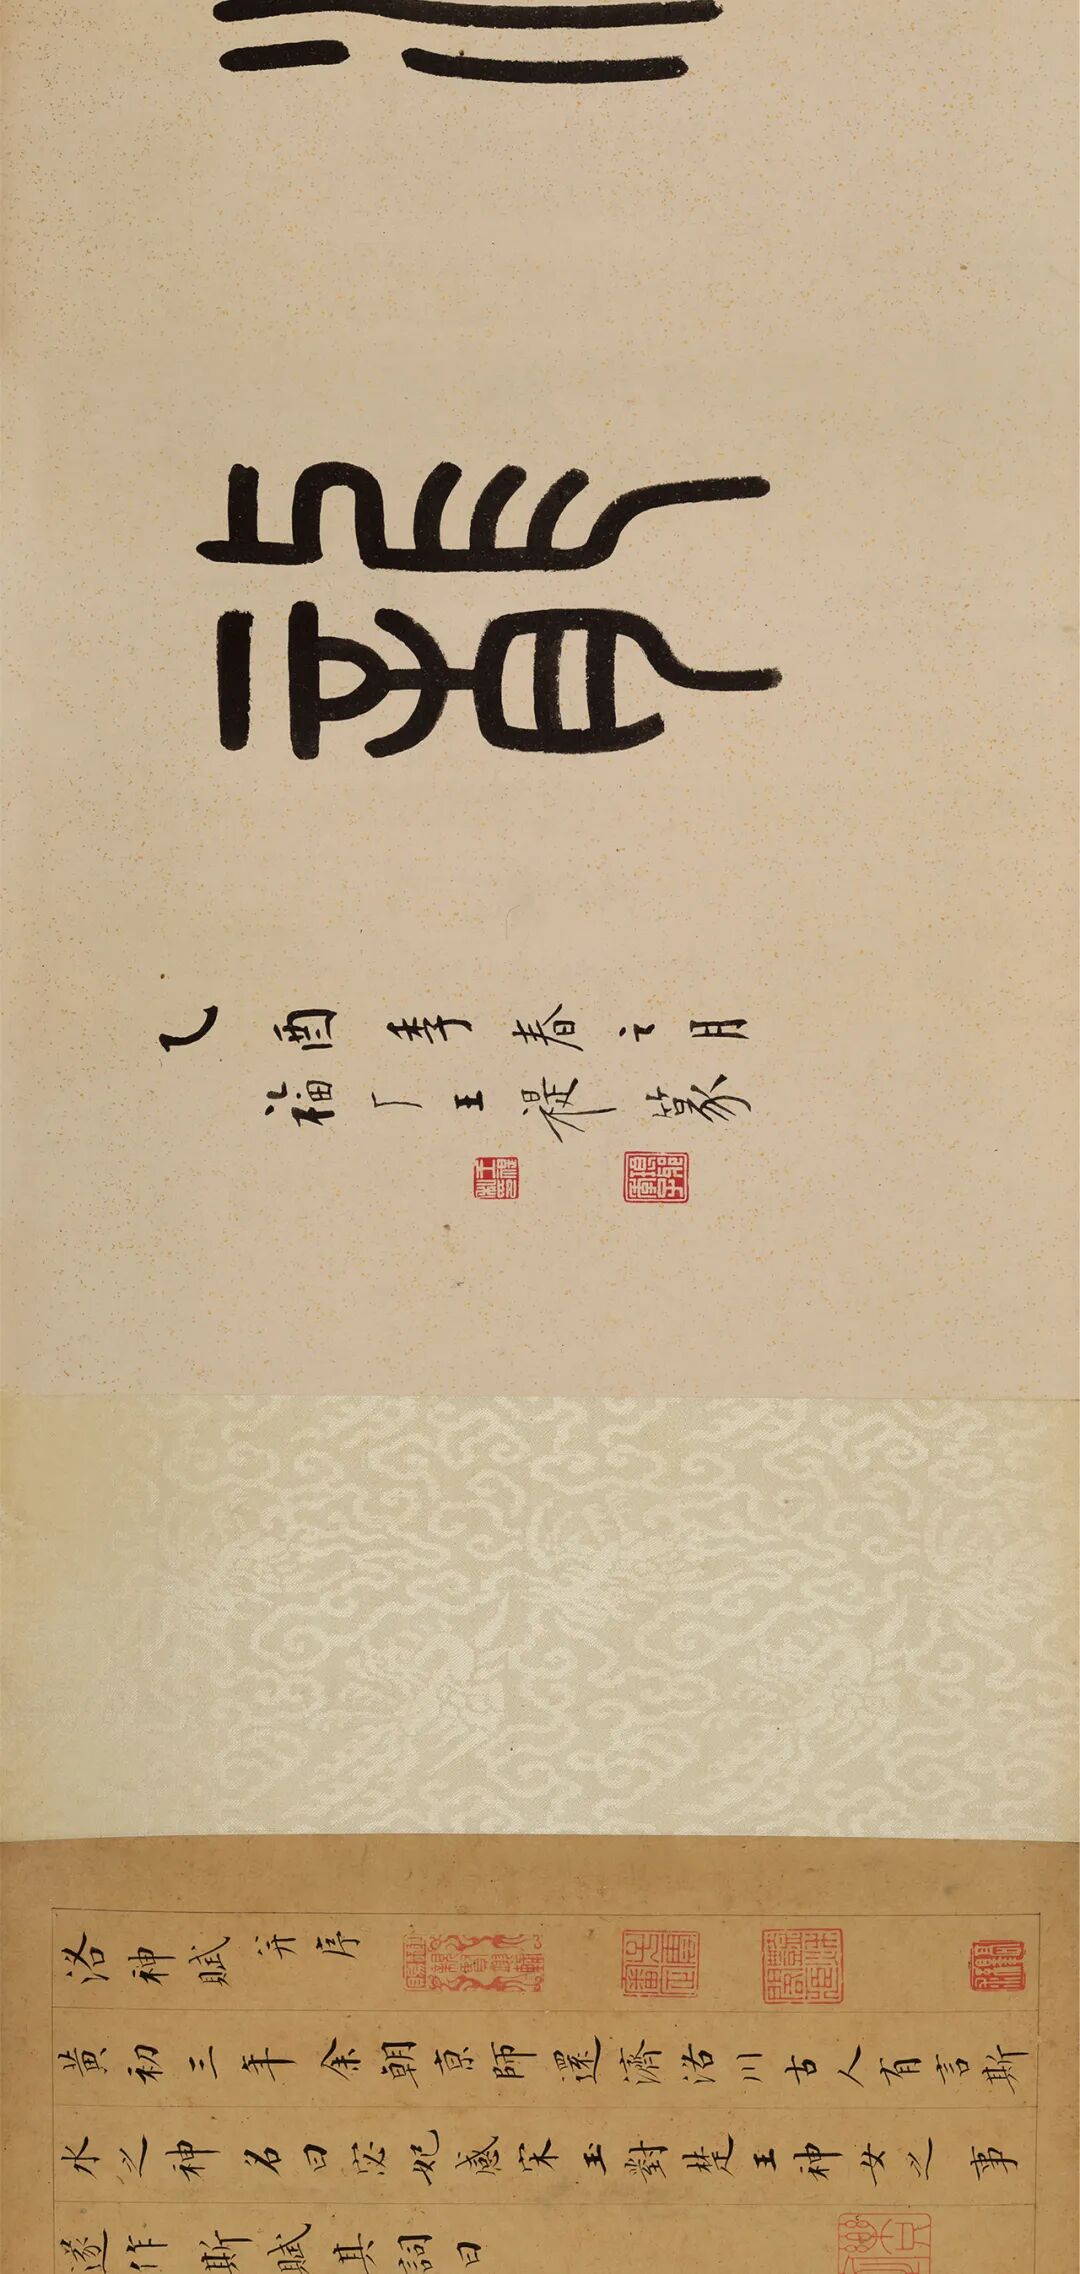 龍
乙酉季春之月
福厂王禔篆
洛神賦并序
黃初三年余朝京師還濟洛川古人有言斯
水之神名曰宓妃感宋玉對楚王神女之事
遂作斯賦其詞曰